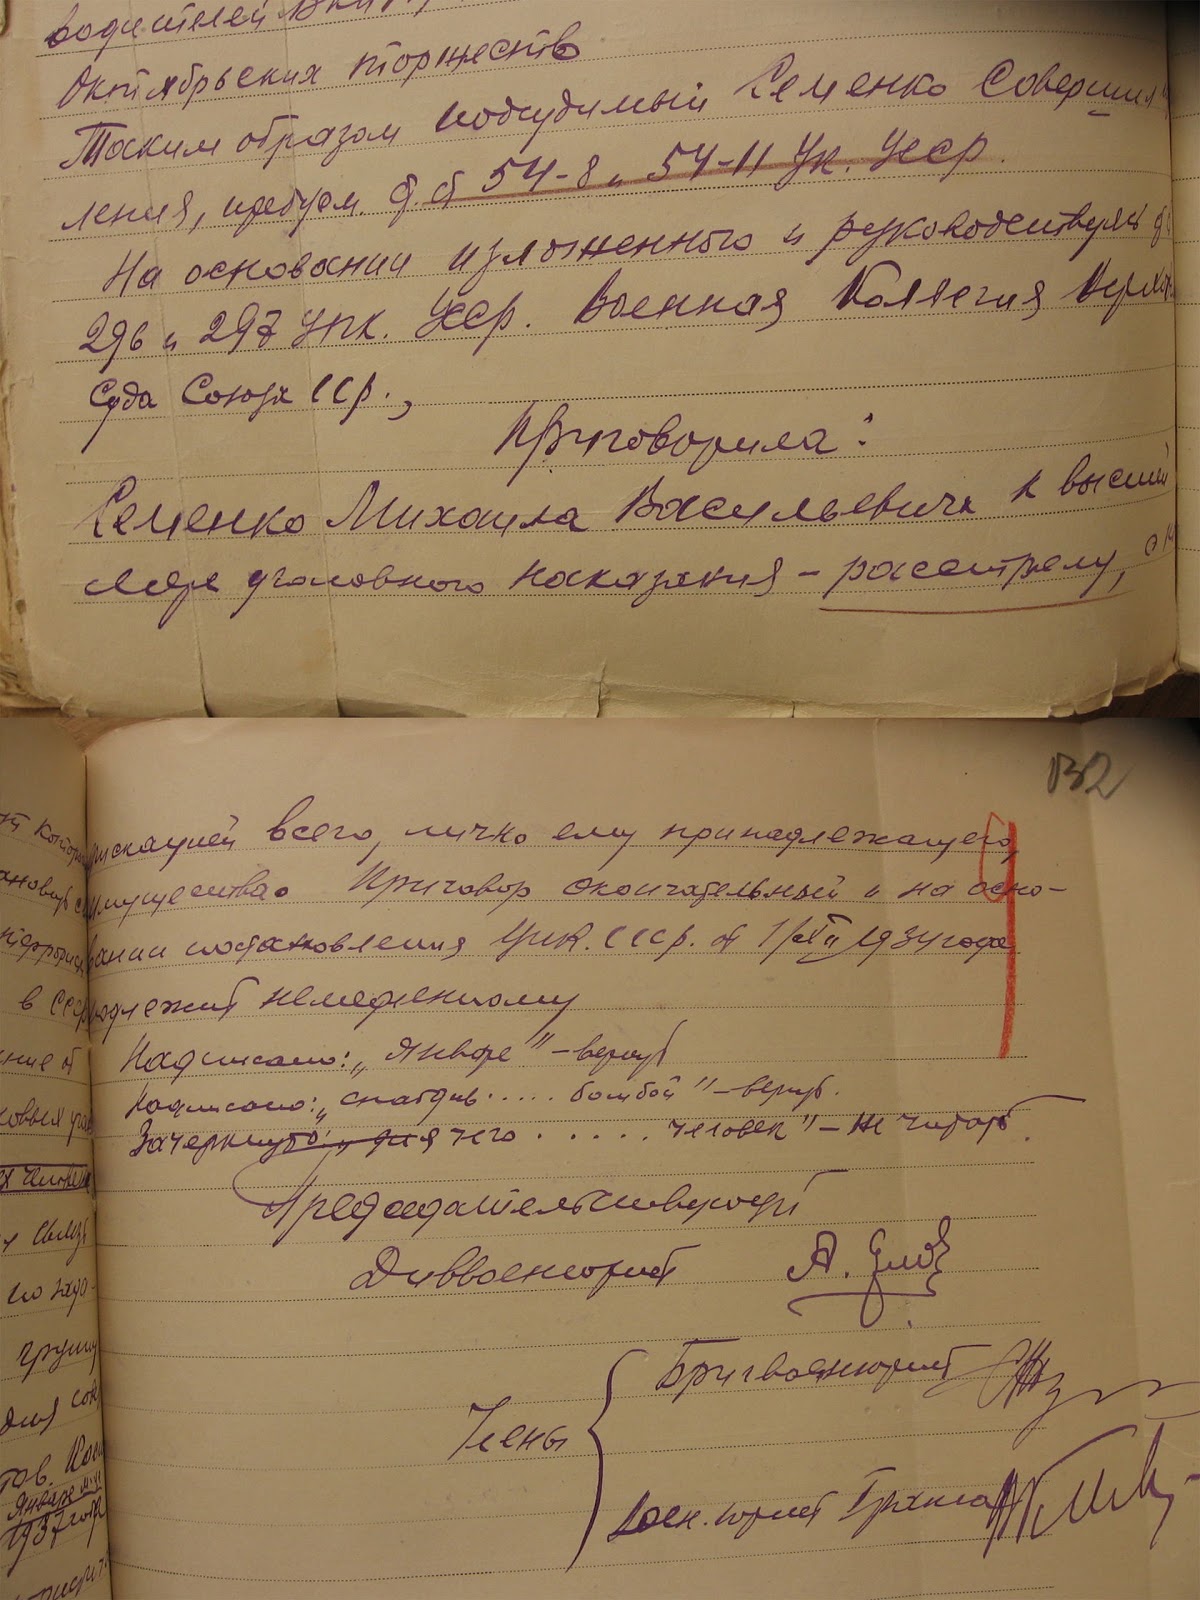 водителей
Октябрьских торжеств
Таким образом подсудимый Семенко совершил
ления, предусм. ст. ст 54-8 и 54-11 Ук. Усср.
На основании изложенного и руководствуясь ст
296 и 297 Упк. Усср. Военная Коллегия Верхов.
Суда Союза ССР.,
Приговорила:
Семенко Михаила Васильевича к высшей
мере уголовного наказания – расстрелу, с
132
фискацией всего, лично ему принадлежащего,
имущества. Приговор окончательный и на осно-
вании постановления Цик. СССР. от 1/XII 1934 года
подлежит немедленному
Надписано: „Январе" – верить
Надписано: „ ..... бомбой" – верить.
Зачеркнуто: „для чего ...... человек" – не читать.
Председательствующий
Диввоенюрист А.
Члены
Бригвоенюрист
Воен. юрист I ранга
которы
ановить
террорист
в СССР
ние от
ковых
человек
связь
по зада-
группы
для
тов. Кос
Январе
1937 года